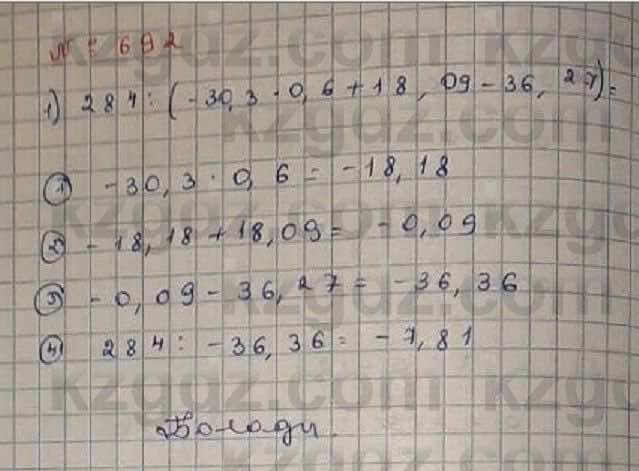 №: 692
1) 284 : (-30,3 · 0,6 + 18,09 - 36,27) =
① -30,3 · 0,6 = -18,18
② -18,18 + 18,09 = -0,09
③ -0,09 - 36,27 = -36,36
④ 284 : -36,36 = -7,81
Болады.
kzgdz.com